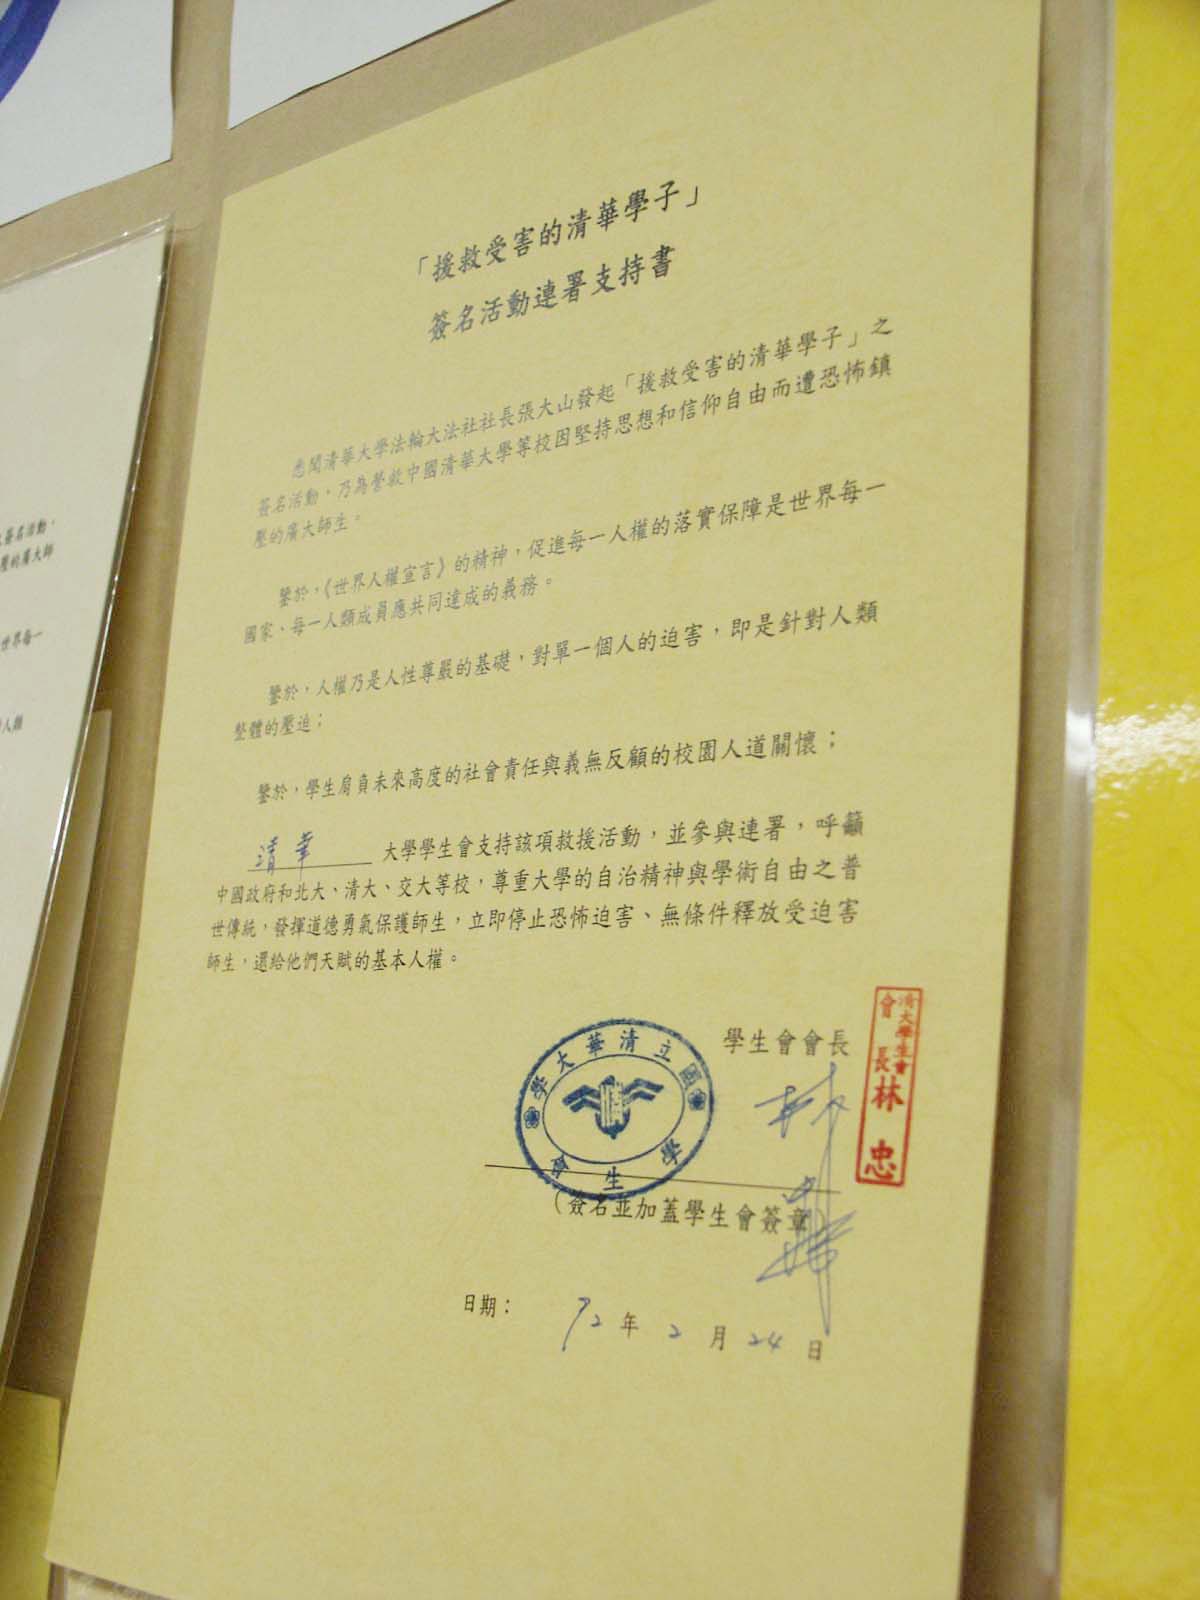 「援救受害的清華學子」
簽名活動連署支持書
悉聞清華大學法輪大法社社長張大山發起「援救受害的清華學子」之
簽名活動，乃為營救中國清華大學等校因堅持思想和信仰自由而遭恐怖鎮
壓的廣大師生。
鑒於，《世界人權宣言》的精神，促進每一人權的落實保障是世界每一
國家、每一人類成員應共同達成的義務。
鑒於，人權乃是人性尊嚴的基礎，對單一個人的迫害，即是針對人類
整體的壓迫；
鑒於，學生肩負未來高度的社會責任與義無反顧的校園人道關懷；
清華 大學學生會支持該項救援活動，並參與連署，呼籲
中國政府和北大、清大、交大等校，尊重大學的自治精神與學術自由之普
世傳統，發揮道德勇氣保護師生，立即停止恐怖迫害、無條件釋放受迫害
師生，還給他們天賦的基本人權。
學生會會長
清大學生會
會長 林忠
國立清華大學
學生會
（簽名並加蓋學生會簽章
日期： 92 年 2 月 24 日
簽名活動，
壓的廣大師
世界每一
人類